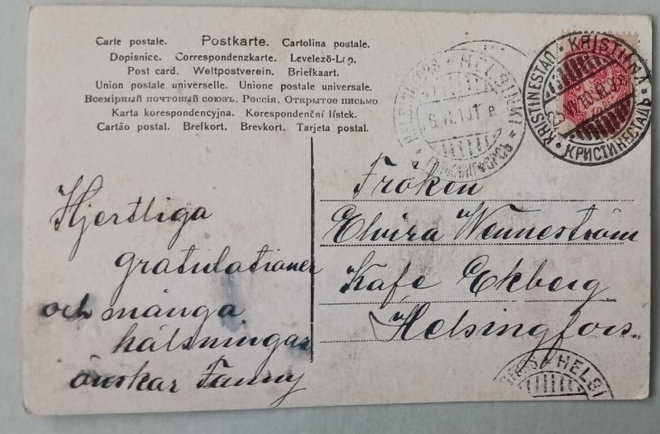 Carte postale. Postkarte. Cartolina postale.
Dopisnice. Correspondenzkarte. Levelező-Lap.
Post card. Weltpostverein. Briefkaart.
Union postale universelle. Unione postale universale.
Всемірный почтовый союзъ. Россія. Открытое письмо
Karta korespondencyjna. Korespondenční lístek.
Cartão postal. Brefkort. Brevkort. Tarjeta postal.
HELSINKI
KRISTINESTAD * KRISTIINA * КРИСТИНЕСТАДЪ
Hjertliga
gratulationer
och många
hälsningar
önskar Fanny
Fröken
Elvira Wenneström
Kafe Ekberg
Helsingfors.
HELSI